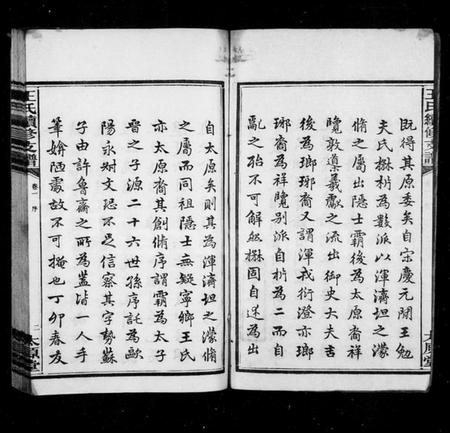 既得其原委矣自宋慶元間王勉
夫氏楙析為數派以渾濟坦之濛
脩之屬出隱士霸後為太原裔祥
覽敦導羲獻之流出御史大夫吉
後為瑯琊裔又謂渾戎衍澄亦瑯
琊裔為祥覽別派自析為二而自
亂之殆不可解然楙固自迷為出
王氏續修支譜
太原堂
自太原矣則其為渾濟坦之濛脩
之屬而同祖隱士無疑寧鄉王氏
亦太原裔其創脩序謂霸為太子
晉之子源二十六世孫序託為歐
陽永叔文恐不足信察其字勢蘇
子由許魯齋之所為蓋皆一人手
筆媕陋處故不可掩也丁卯春友
王氏續修支譜
卷一 序
二
太原堂